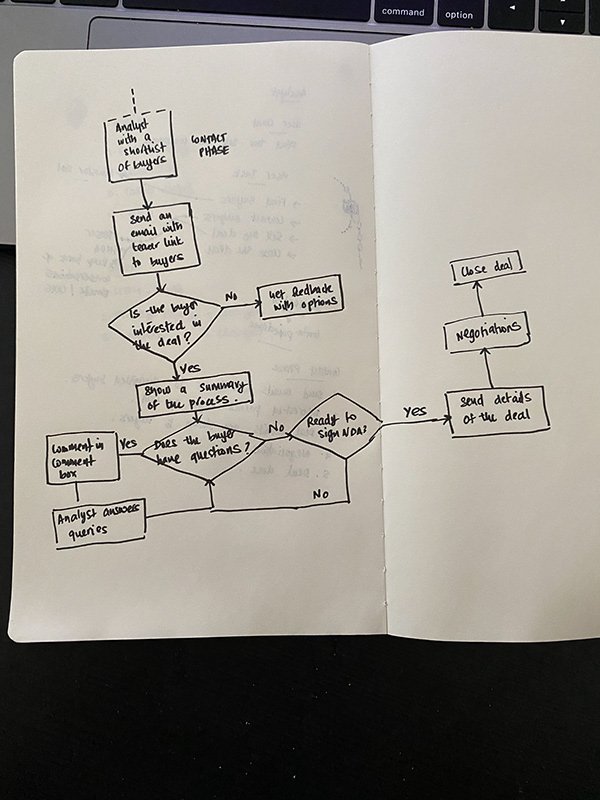 command
option
Analyst
with a
shortlist
of buyers
CONTACT
PHASE
Send an
email with
teaser link
to buyers
Is the buyer
interested in
the deal?
No
Get feedback
with options
Yes
Show a summary
of the process.
Does the buyer
have questions?
Yes
Comment in
comment
box
Analyst answers
queries
No
Ready to
sign NDA?
No
Yes
Send details
of the deal
Negotiations
Close deal